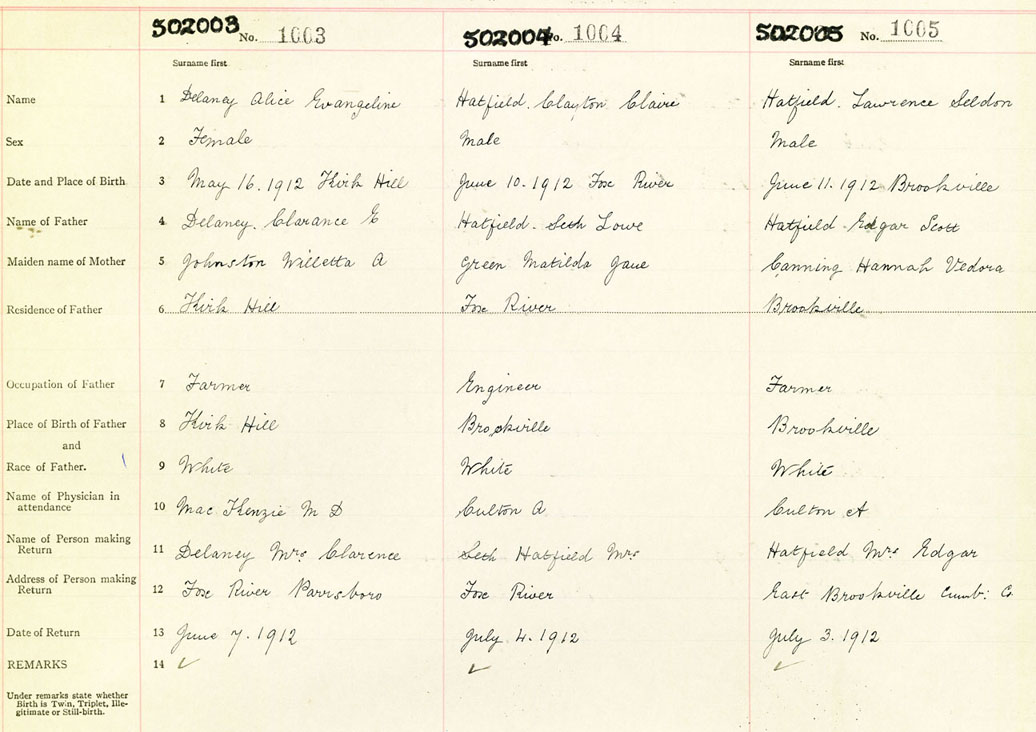 502003 No. 1003 502004 No. 1004 502005 No. 1005
Surname first Surname first Surname first
Name 1 Delaney Alice Evangeline Hatfield. Clayton Claire Hatfield. Lawrence Seldon
Sex 2 Female Male Male
Date and Place of Birth 3 May 16. 1912 Kirk Hill June 10. 1912 Fox River June 11. 1912 Brookville
Name of Father 4 Delaney. Clarance E Hatfield. Seth Lowe Hatfield. Edgar Scott
Maiden name of Mother 5 Johnston Willetta A Green Matilda Jane Canning Hannah Vedora
Residence of Father 6 Kirk Hill Fox River Brookville
Occupation of Father 7 Farmer Engineer Farmer
Place of Birth of Father 8 Kirk Hill Brookville Brookville
and
Race of Father. 9 White White White
Name of Physician in
attendance 10 Mac Kenzie M D Culton A Culton A
Name of Person making
Return 11 Delaney Mrs Clarence Seth Hatfield Mrs Hatfield Mrs Edgar
Address of Person making
Return 12 Fox River Parrsboro Fox River East Brookville Cumb: Co
Date of Return 13 June 7. 1912 July 4. 1912 July 3. 1912
REMARKS 14 ✓ ✓ ✓
Under remarks state whether
Birth is Twin, Triplet, Ille-
gitimate or Still-birth.